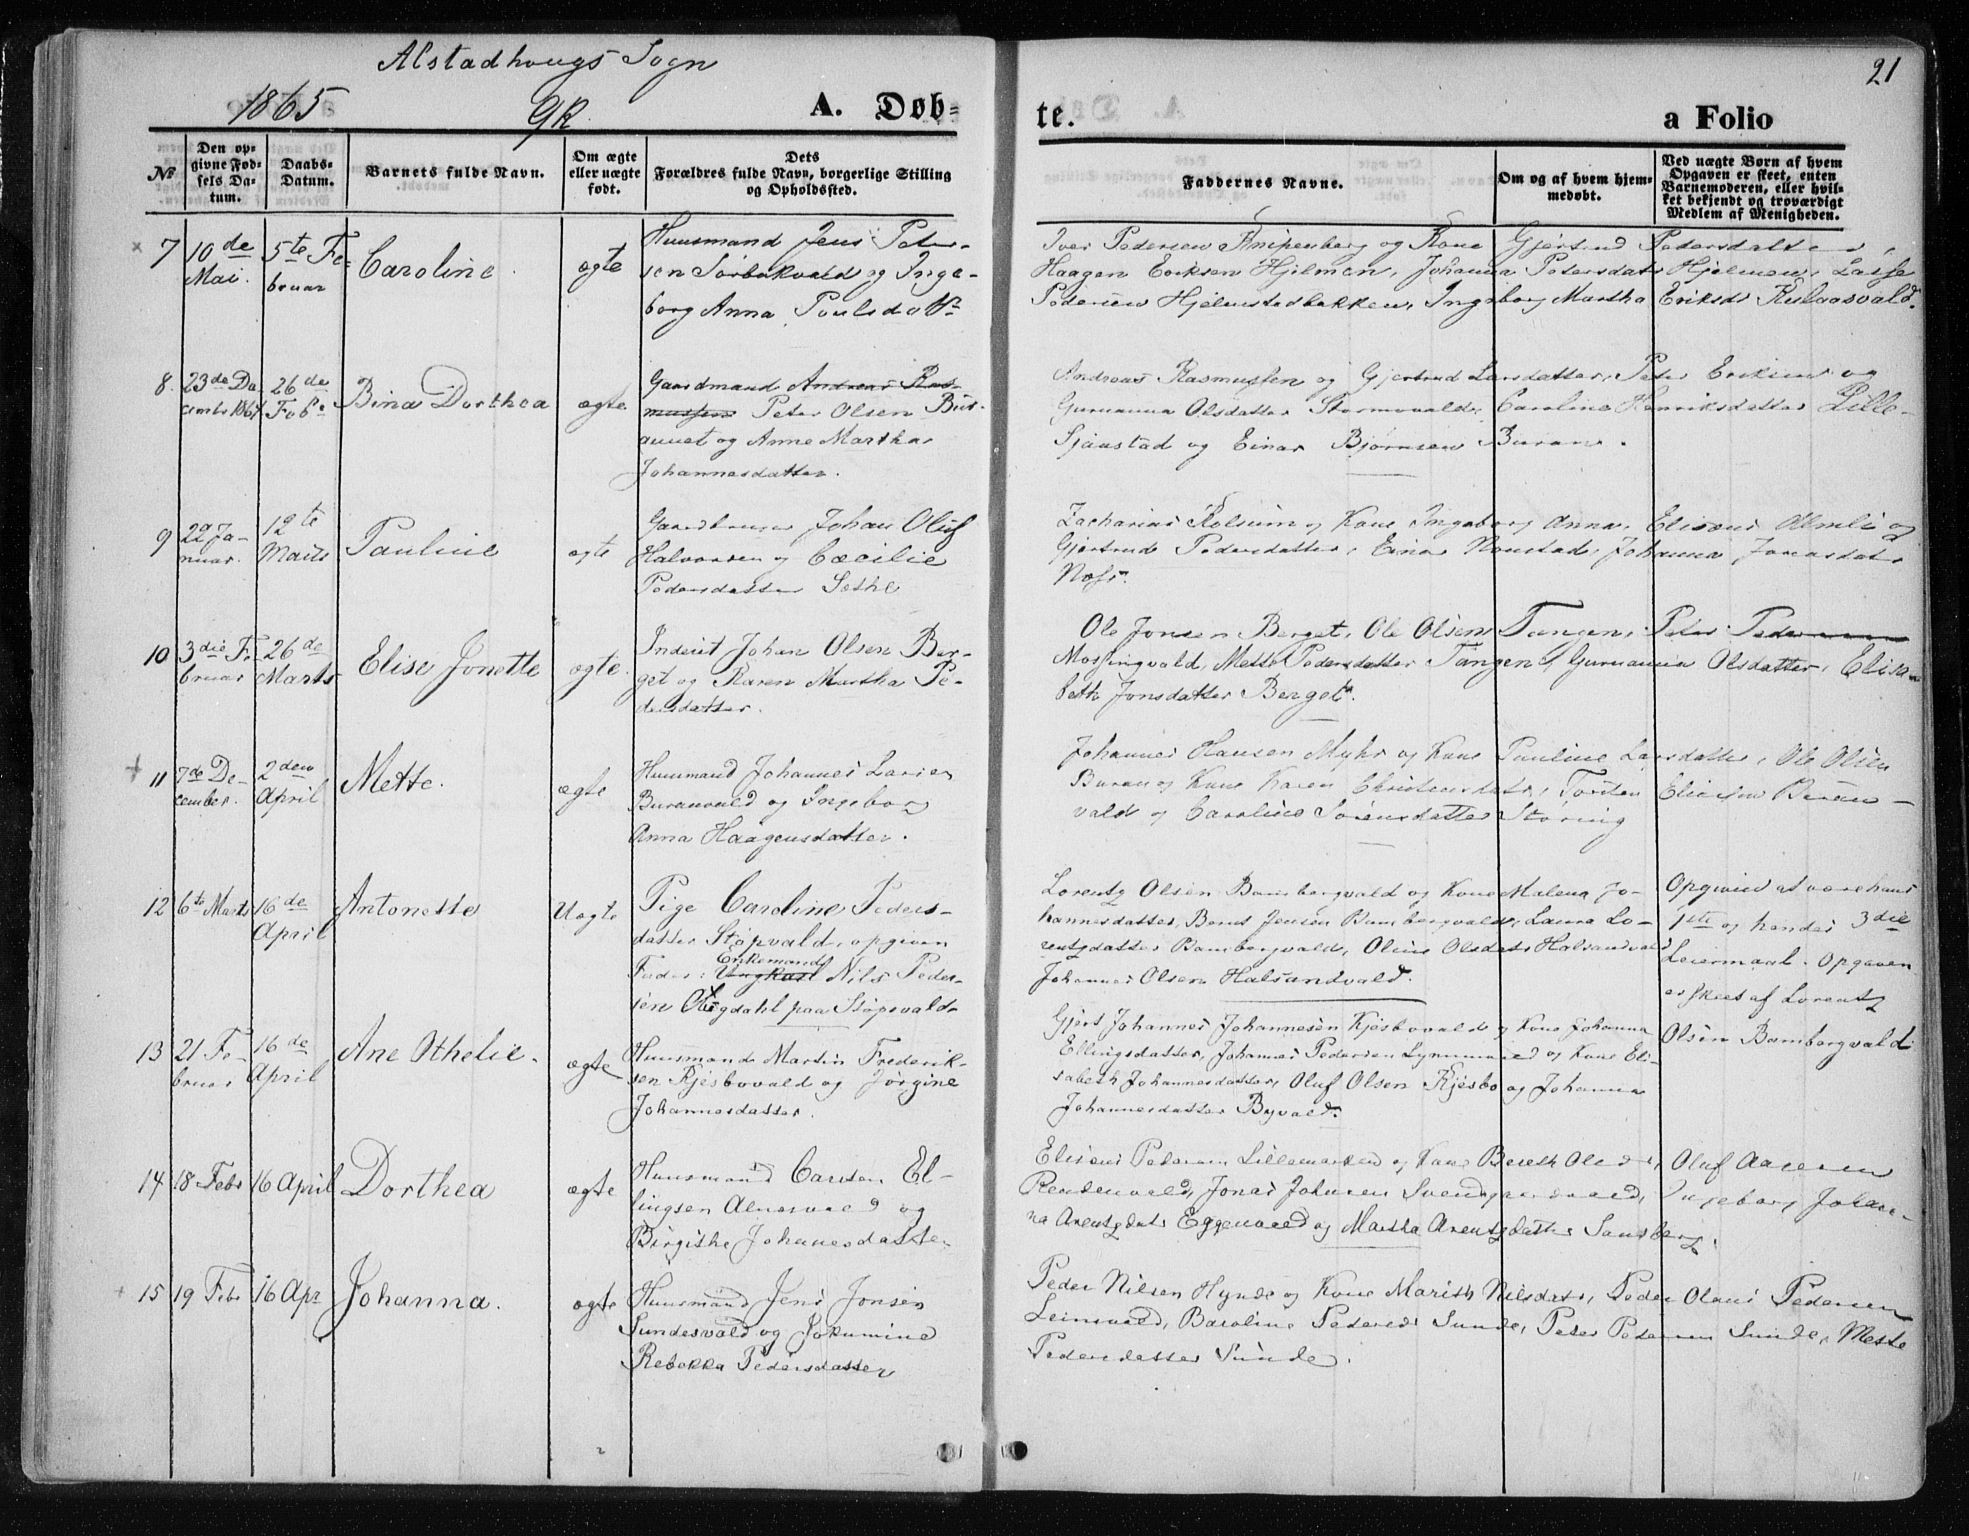 Alstadhougs Sogn
21
1865
A. Døb=
te.
a Folio
№
Den op=
givne Fød=
sels Da=
tum.
Daabs=
Datum.
Barnets fulde Navn.
Om ægte
eller uægte
født.
Dets
Forældres fulde Navn, borgerlige Stilling
og Opholdssted.
Faddernes Navne.
Om og af hvem hjem=
medøbt.
Ved uægte Børn af hvem
Opgaven er skeet, enten
Barnemoderen, eller hvil=
ket bekjendt og troværdigt
Medlem af Menigheden.
7
10de
Mai.
5te Fe-
bruar
Caroline
ægte
Huusmand Jens Peter-
sen Sørbakvald og Inge-
borg Anna Poulsdatr
Iver Pedersen Knipenberg og Kone Gjertrud Pedersdatter,
Haagen Eriksen Hjelmen, Johanna Petersdatr Hjelmen, Lasse
Pedersen Hjelmstadbakken, Ingeborg Martha Eriksdr
8.
23de De-
cember 1864
26de
Febr
Bina Dorthea
ægte
Gaardmand Andreas Ras-
mussen Peter Olsen Bur-
aunet og Anne Martha
Johannesdatter.
Andreas Rasmussen og Gjertrud Larsdatter, Peter Eriksen og
Guruanna Olsdatter Stormovald, Caroline Henriksdatter Lille-
Sjaastad og Einar Bjørnsen Buran.
9
22 Ja-
nuar.
12te
Marts
Pauline
ægte
Gaardbruger Johan Oluf
Halvorsen og Cæcilie
Pedersdatter Sethe
Zacharias Kolsum og Kone Ingeborg Anna, Eliseus Almli og
Gjertrud Pedersdatter, Einar Nonstad, Johanna Jonasdatr
10
3die Fe-
bruar
26de
Marts
Elise Jonette
ægte.
Inderst Johan Olsen Ber-
get og Karen Martha Pe-
dersdatter.
Ole Jonsen Berget, Ole Olsen Tangen, Peter Pedersen
Mossingvald, Mette Pedersdatter Tangen, Guruanna Olsdatter, Elisa-
beth Jonsdatter Berget.
11
7de De-
cember.
2den
April
Mette.
ægte
Huusmand Johannes Larsen
Buranvald og Ingeborg
Anna Haagensdatter.
Johannes Hansen Myhr og Kone Pauline Larsdatter, Ole Olsen
Buran og Kone Karen Christensdatr, Torsten Eliasen Buran-
vald og Caroline Sørensdatter Støring
12
6te Marts
16de
April
Antonette
Uægte
Pige Caroline Peders-
datter Støpvald, opgiven
Enkemand
Fader: Ungkarl Nils Peder-
sen Olbegdahl paa Støpvald.
Lorentz Olsen Bambergvald og Kone Malena Jo-
hannesdatter, Bernt Jensen Bambergvald, Laura Lo-
rentzdatter Bambergvald, Oline Olsdatr Halsandvald
Johannes Olsen Halsandvald.
Opgivin at være hans
1ste og hendes 3die
Leiermaal. Opgaven
er skeet af Lorentz
Olsen Bambergvald
13
21 Fe-
bruar
16de
April
Ane Othelie.
ægte
Huusmand Martin Frederik-
sen Kjesbovald og Jørgine
Johannesdatter.
Gjert Johannes Johannesen Kjesbovald og Kone Johanna
Ellingsdatter, Johannes Pedersen Lynumvald og Kone Eli-
sabeth Johannesdatter, Oluf Olsen Kjesbo og Johanna
Johannesdatter Byvald.
14
18 Febr
16 April
Dorthea
ægte
Huusmand Carsten El-
lingsen Alnesvald og
Birgithe Johannesdatter
Eliseus Pedersen Lillemarken og Kone Bereth Olsdr, Oluf Aasen
Reudenvald, Jonas Johnsen Svendgaardsvald, Ingeborg Johan-
na Arentzdatr Eggenvald og Martha Arentzdatter Sandberg.
15
19 Febr
16 Apr
Johanna.
ægte
Huusmand Jens Jonsen
Sundesvald og Jokumine
Rebekka Pedersdatter
Peder Nilsen Hynde og Kone Marith Nilsdatr, Peder Olaus Pedersen
Leinsvald, Baroline Pedersdr Sunde, Peter Pedersen Sunde, Mette
Pedersdatter Sunde.